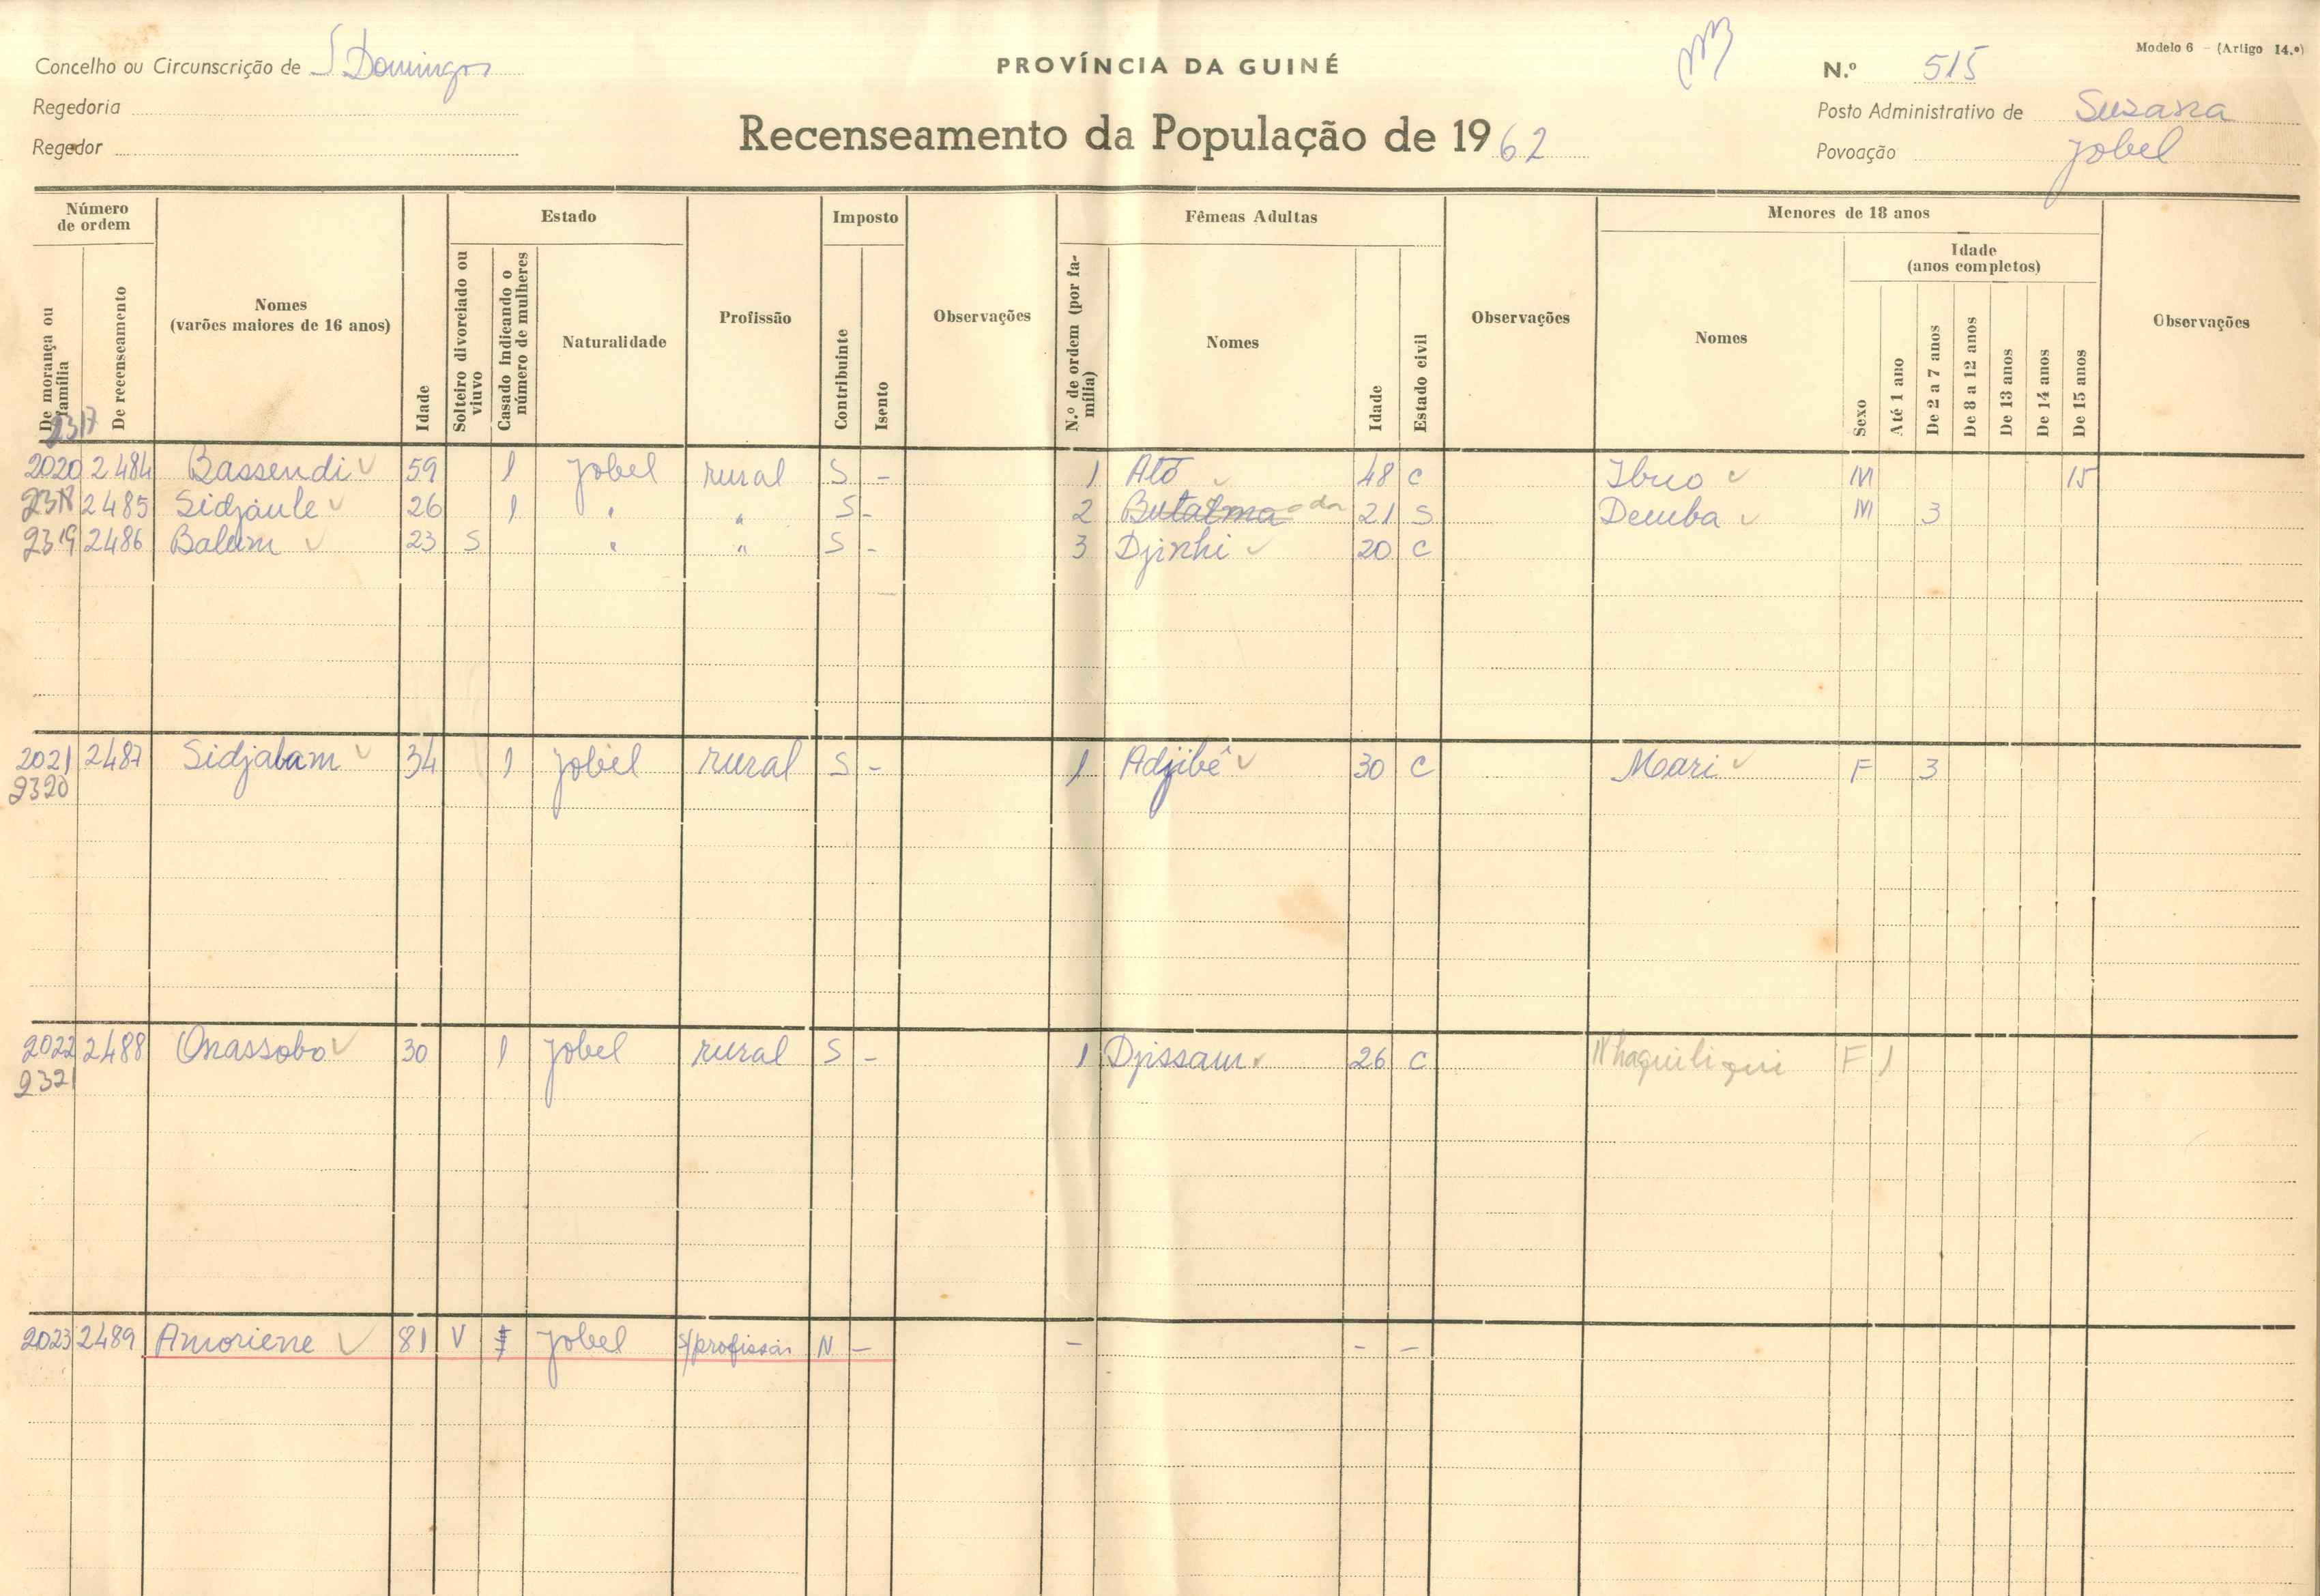 Concelho ou Circunscrição de S Domingos
PROVÍNCIA DA GUINÉ
N.º 515
Modelo 6 — (Artigo 14.º)
Regedoria
Posto Administrativo de Suzana
Regedor
Recenseamento da População de 1962
Povoação Jobel
Número de ordem
De morança ou família
De recenseamento
Nomes (varões maiores de 16 anos)
Idade
Estado
Solteiro divorciado ou viuvo
Casado indicando o número de mulheres
Naturalidade
Profissão
Imposto
Contribuinte
Isento
Observações
Fêmeas Adultas
N.º de ordem (por família)
Nomes
Idade
Estado civil
Observações
Menores de 18 anos
Nomes
Sexo
Idade (anos completos)
Até 1 ano
De 2 a 7 anos
De 8 a 12 anos
De 13 anos
De 14 anos
De 15 anos
Observações
2317
2020 2484 Bassendi 59 1 Jobel rural S - 1 Ató 48 C Ibuo M 15
2318 2485 Sidjaule 26 1 " " S - 2 21 S Demba M 3
2319 2486 Balam 23 S " " S - 3 Djinhi 20 C
2021 2487 Sidjabam 34 1 Jobel rural S - 1 Adjibê 30 C Mari F 3
2320
2022 2488 Onassobo 30 1 Jobel rural S - 1 Djissam 26 C Nhaquiliqui F 1
2321
2023 2489 Amoriene 81 V Jobel s/profissão N - - - -